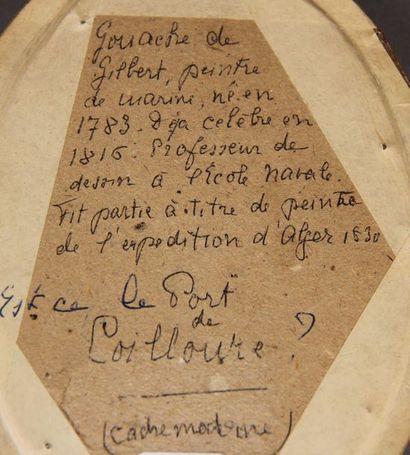 Gouache de
Gilbert, peintre
de marine, né en
1783. Déja célèbre en
1816. Professeur de
dessin à l'Ecole navale.
Fit partie à titre de peintre
de l'expedition d'Alger 1830
Est ce le Port
de
Coilloure ?
(cadre moderne)